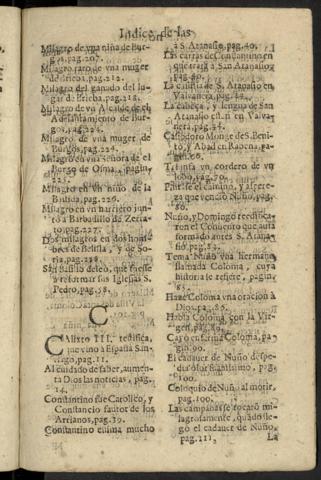 Indice de las
Milagro de vna niña de Bur-
gos, pag. 207.
Milagro raro de vna muger
de Brieba, pag. 212.
Milagro del ganado del lu-
gar de Brieba, pag. 218.
Milagro de vn Alcalde de el
Adelantamiento de Bur-
gos, pag. 224.
Milagro de vna muger de
Burgos, pag. 224.
Milagro en vna señora de el
Burgo de Osma, pagin.
225.
Milagro en vn niño de la
pag. 226.
Milagro en vn harriero jun-
to a Barbadillo de
pag. 227.
Dos milagros en dos hom-
bres de y de So-
ria, pag. 228.
San Basilio deseó, que fuesse
a reformar sus Iglesias S.
Pedro, pag. 58.
C
CAlixto III. testifica,
que vino a España San-
tiago, pag. 11.
Al cuidado de saber, aumen-
ta Dios las noticias, pag.
14.
Constantino fue Catolico, y
Constancio fautor de los
Arrianos, pag. 39.
Constantino estima mucho
a S. Atanasio, pag. 40.
Las cartas de Constantino en
que trata a San Atanasio,
pag. 40.
La casulla de S. Atanasio en
Valvanera, pag. 42.
La cabeça, y lengua de San
Atanasio estàn en Valva-
nera, pag. 54.
Celodoro Monge de S. Beni-
to, y Abad en Rabena, pa-
gin. 60.
vn cordero de vn
lobo, pag. 70.
el camino, y aspere-
za que venciò Nuño, pag.
80.
Nuño, y Domingo reedifica-
ron el Convento que auia
formado antes S. Atana-
sio, pag. 82.
Tenia Nuño vna hermana
llamada Coloma, cuya
historia se refiere, pagin.
85.
Haze Coloma vna oracion à
Dios, pag. 86.
Habla Coloma con la Vir-
gen, pag. 89.
Caro enferma Coloma, pa-
gin. 90.
El cadauer de Nuño despe-
dia olor suauissimo, pag.
100.
Coloquio de Nuño al morir,
pag. 100.
Las campanas se tocarõ mi-
lagrosamente, quãdo lle-
gò el cadauer de Nuño,
pag. 111,
La